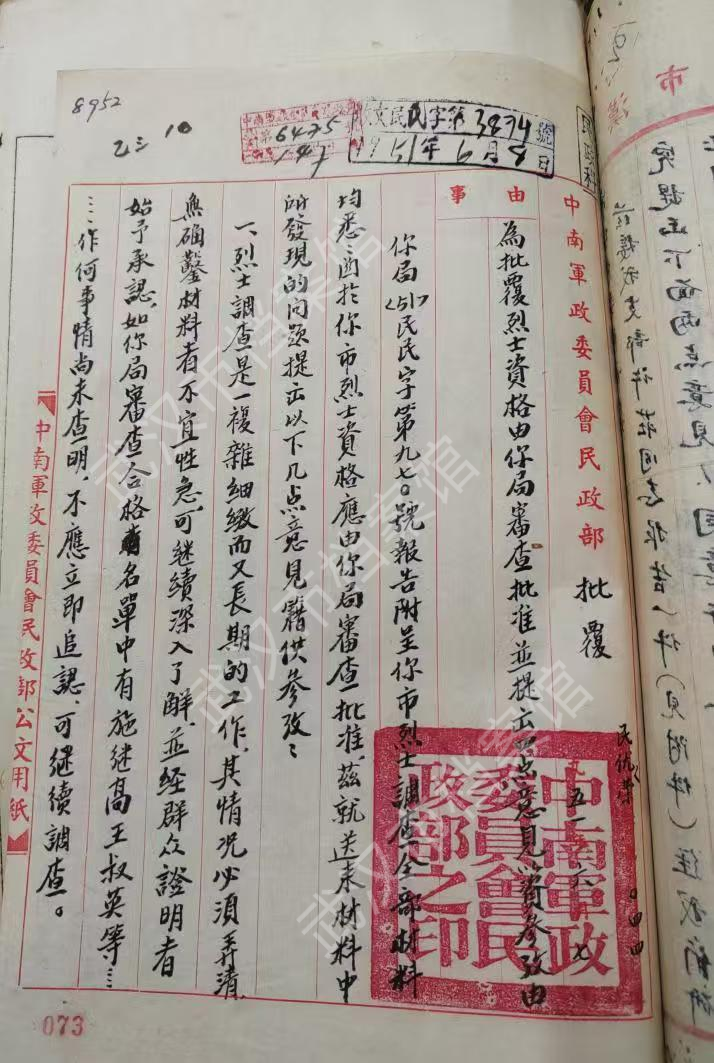 8952
乙三 10
6475
收文民民字第3894號
1951年6月8日
民政科
中南軍政委員會民政部 批覆
事由
為批覆烈士資格由你局審查批准並提出四点意見籍參攷由
民优
九五一 六 七
〇四四
你局〈51〉民民字第九七〇號報告附呈你市烈士調查全部材料
均悉：囟於你市烈士資格應由你局審查批准，茲就送来材料中
所發現的问题提出以下几点意見籍供參攷：
一、烈士調查是一複雜细緻而又長期的工作，其情况必須弄清，
無确鑿材料者不宜一性急，可继續深入了解，並经群众證明者
始予承認，如你局審查合格名單中有施继高王叔英等⋯
⋯作何事情尚未查明，不應立即追認，可继續調查。
中南軍政委員會民政部之印
中南軍政委員會民政部公文用紙
073
武汉市档案馆
武汉市档案馆
武汉市档案馆
市
究提出下面两点意見